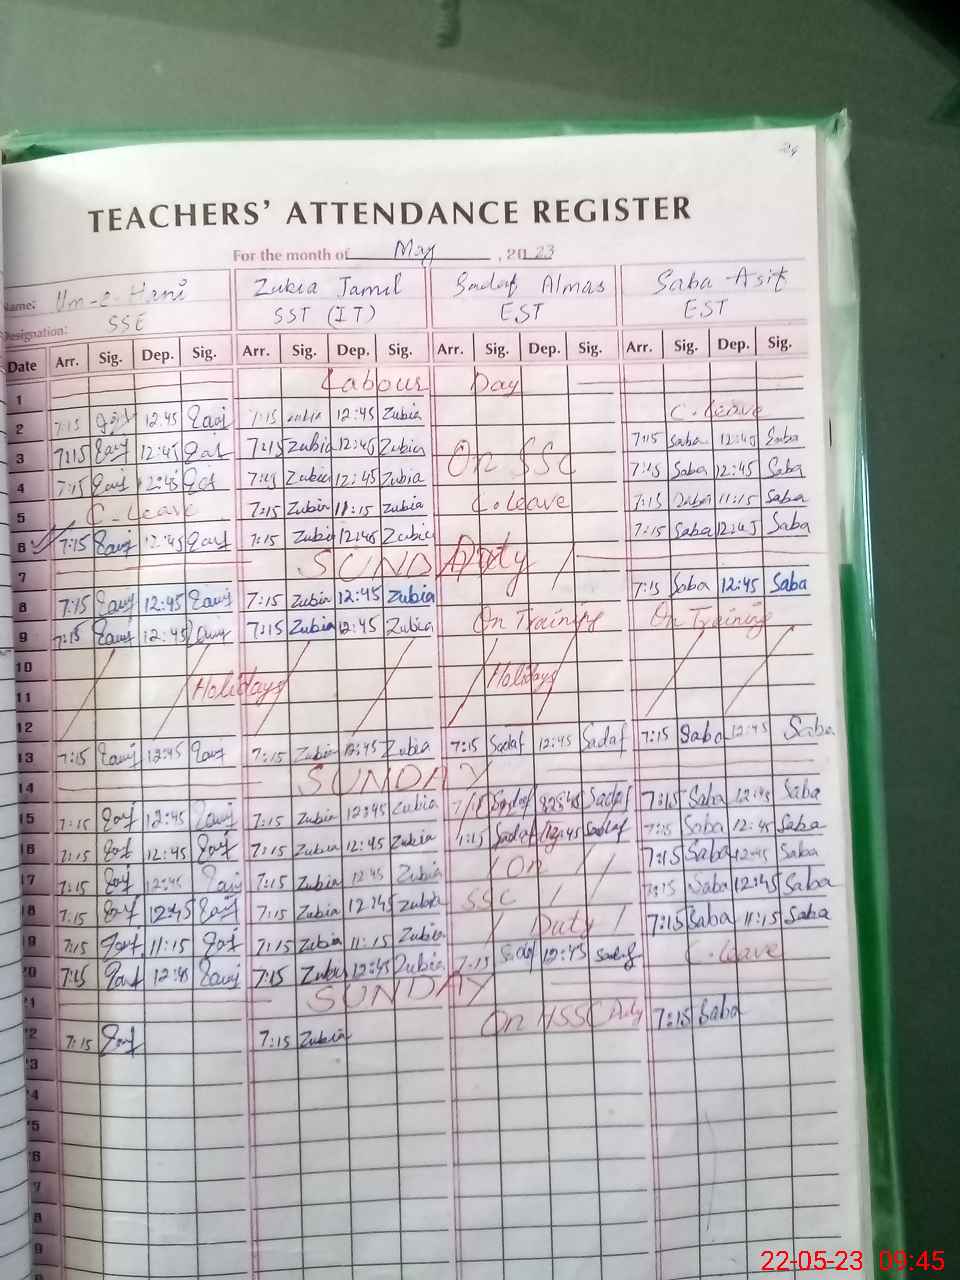 24
TEACHERS' ATTENDANCE REGISTER
For the month of May , 2023
Name: Um-e-Hani Zubia Jamil Sadaf Almas Saba Asif
Designation: SSE SST (IT) EST EST
Date Arr. Sig. Dep. Sig. Arr. Sig. Dep. Sig. Arr. Sig. Dep. Sig. Arr. Sig. Dep. Sig.
1 Labour Day
2 7:15 12:45 7:15 Zubia 12:45 Zubia C. leave
3 7:15 12:45 7:15 Zubia 12:45 Zubia On SSC 7:15 Saba 12:45 Saba
4 7:15 12:45 7:15 Zubia 12:45 Zubia 7:15 Saba 12:45 Saba
5 C. Leave 7:15 Zubia 11:15 Zubia C. leave 7:15 Saba 11:15 Saba
6 7:15 12:45 7:15 Zubia 12:45 Zubia Duty 7:15 Saba 12:45 Saba
7 SUNDAY
8 7:15 12:45 7:15 Zubia 12:45 Zubia 7:15 Saba 12:45 Saba
9 7:15 12:45 7:15 Zubia 12:45 Zubia On Training On Training
10
11 Holidays Holidays
12
13 7:15 12:45 7:15 Zubia 12:45 Zubia 7:15 Sadaf 12:45 Sadaf 7:15 Saba 12:45 Saba
14 SUNDAY
15 7:15 12:45 7:15 Zubia 12:45 Zubia 7:15 Sadaf Sadaf 7:15 Saba 12:45 Saba
16 7:15 12:45 7:15 Zubia 12:45 Zubia 7:15 Sadaf 12:45 Sadaf 7:15 Saba 12:45 Saba
17 7:15 12:45 7:15 Zubia 12:45 Zubia On 7:15 Saba 12:45 Saba
18 7:15 12:45 7:15 Zubia 12:45 Zubia SSC 7:15 Saba 12:45 Saba
19 7:15 11:15 7:15 Zubia 11:15 Zubia Duty 7:15 Saba 11:15 Saba
20 7:15 12:45 7:15 Zubia 12:45 Zubia 7:15 Sadaf 12:45 Sadaf C. leave
21 SUNDAY
22 7:15 7:15 Zubia On HSSC Duty 7:15 Saba
23
24
25
26
27
28
29
22-05-23 09:45